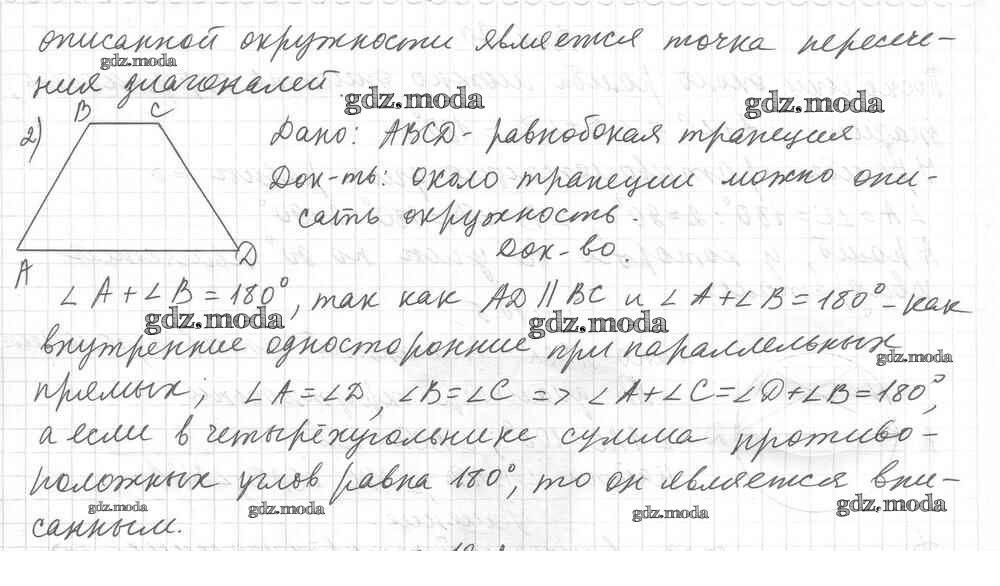 описанной окружности является точка пересече-
ния диагоналей.
gdz.moda
gdz.moda
gdz.moda
2)
B C
A D
Дано: ABCD - равнобокая трапеция
Док-ть: около трапеции можно опи-
сать окружность.
Док-во.
∠A+∠B=180°, так как AD∥BC и ∠A+∠B=180°-как
gdz.moda
gdz.moda
внутренние односторонние при параллельных
gdz.moda
прямых; ∠A=∠D, ∠B=∠C => ∠A+∠C=∠D+∠B=180°,
а если в четырёхугольнике сумма противо-
положных углов равна 180°, то он является впи-
gdz.moda
gdz.moda
gdz.moda
gdz.moda
санным.